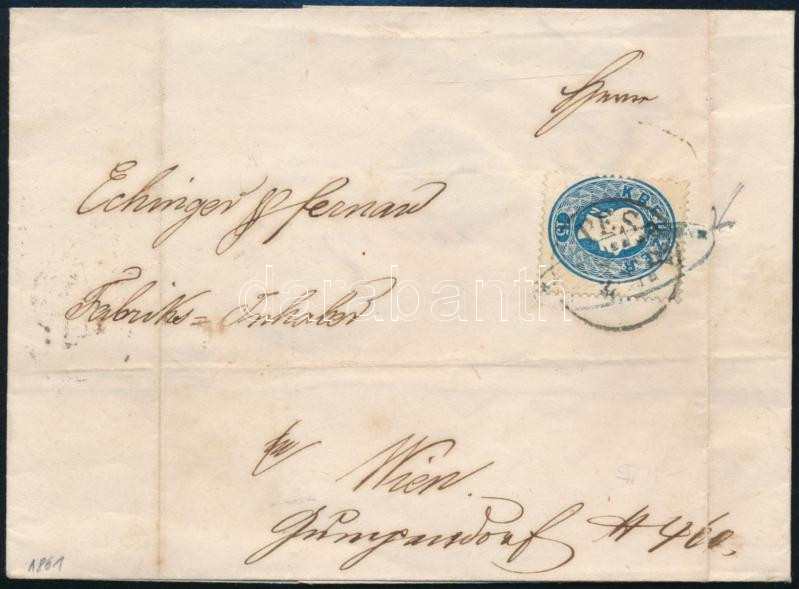 Herrn
Echinger & Fernau
Fabriks= Inhaber
in Wien
Gumpendorf # 460.
KREUZER
15
PES
darabanth
1861